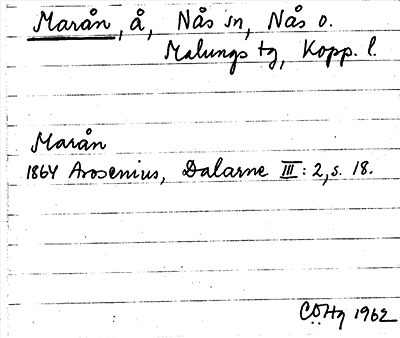 Marån, å, Nås sn, Nås o.
Malungs tg, Kopp. l.
Marån
1864 Arosenius, Dalarne III: 2, s. 18.
CÖHg 1962